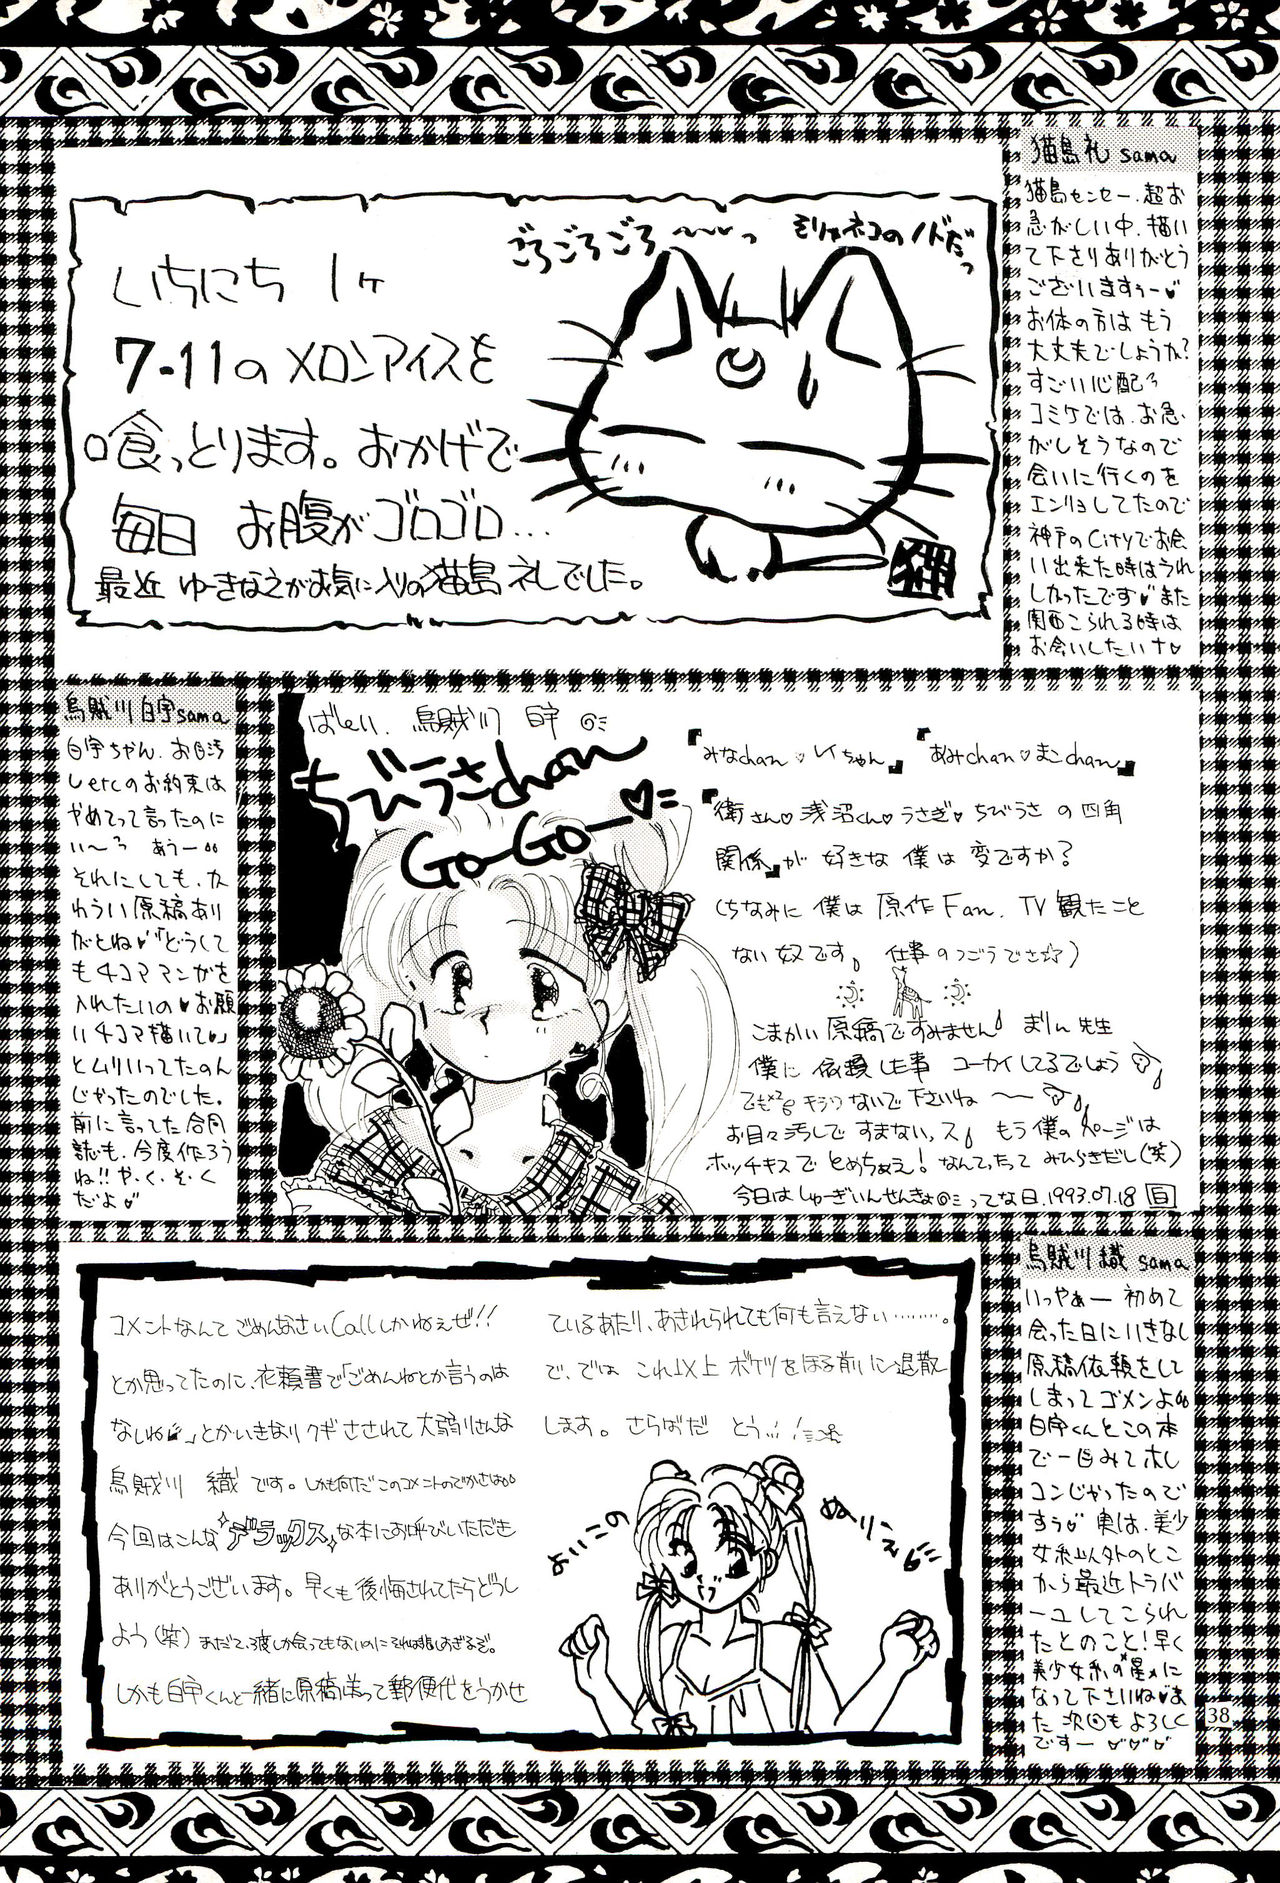 ごろごろごろ〜〜〜っ
そりゃネコのノドだっ
いちにち 1ヶ
7-11のメロンアイスを
喰っとります。おかげで
毎日 お腹がゴロゴロ…
最近 ゆーきなえがお気に入りの猫島礼でした。
猫島礼 sama
猫島センセー、超お
急がしい中、描い
て下さりありがとう
ございますぅー♥
お体の方は もう
大丈夫でしょうか?
すごい心配
コミケでは、お急
がしそうなので
会いに行くのを
エンリョしてたので
神戸のCityでお会
い出来た時はうれ
しかったです♥また
関西こられる時は
お会いしたいナ♥
烏賊川 白宇sama
白宇ちゃん、お目汚
しetcのお約束は
やめてって言ったのに
い〜 あぅー
それにしても、か
わうい原稿あり
がとね♥「どうして
も4コママンガを
入れたいの♥お願
い4コマ描いて♥」
とムリいってたのん
じゃったのでした。
前に言ってた合同
誌も、今度作ろう
ね!!や・く・そ・く
だよ♥
ばい 烏賊川 白宇
ちびうさchan
Go-Go-♥
『みなchan♥レイちゃん』『あみchan♥まこchan』
『衛さん♥浅沼くん♥うさぎ♥ちびうさ の四角
関係』が 好きな 僕は 変ですか?
(ちなみに 僕は 原作Fan、TV観たこと
ない奴です。仕事のつごうでさ)
こまかい原稿ですみません まりん先生
僕に 依頼した事 コーカイしてるでしょう
でも キラワないで下さいね〜
お目々汚しで すまないっス もう僕のページは
ホッチキスで とめちゃえ! なんてったって みひらきだし(笑)
今日は しゅーぎいんせんきょってな日、1993.07.18 白
コメントなんて ごめんなさいCallしかねぇぜ!!
とか思ってたのに、依頼書で「ごめんねとか言うのは
なしね」とかいきなりクギさされて大弱りさんな
烏賊川 織 です。しかも何だこのコメントのでかさは
今回はこんな デラックス な本にお呼びいただき
ありがとうございます。早くも後悔されてたらどうし
よう(笑) まだて、1度しか会ってもないのにそれは悲しすぎるぞ。
しかも白宇くんと一緒に原稿送って郵便代をうかせ
ているあたり、あきれられても何も言えない………。
で、では これ以上 ボケツをほる前に退散
します。さらばだ とう
よいこの
ぬりえ
烏賊川 織 sama
いっやぁー 初めて
会った日にいきなし
原稿依頼をして
しまってゴメンよ
白宇くんとこの本
で一目みてホレ
コンじゃったので
すぅ♥ 実は、美少
女系以外のとこ
から最近トラバ
ーユしてこられ
たとのこと!早く
美少女系の"星"に
なって下さいね♥ま
た次回もよろしく
ですー♥♥♥
38